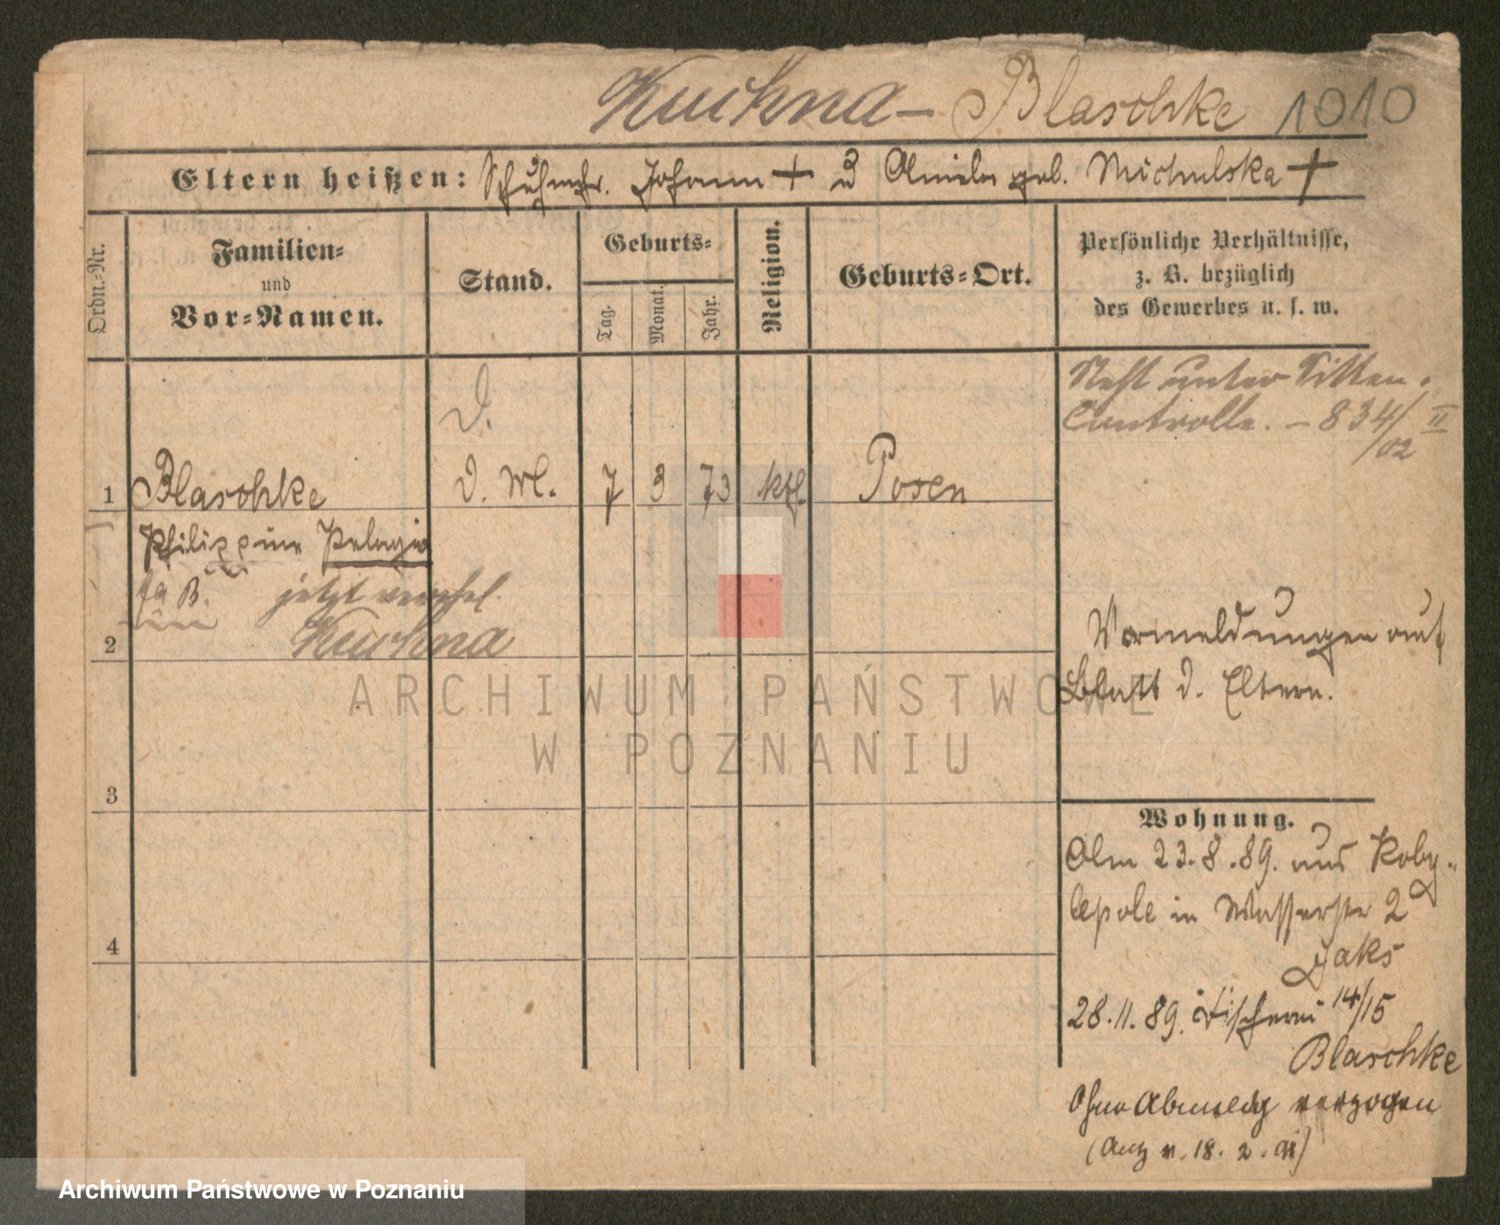 Kuchna - Blaschke 1010
Eltern heißen: Schuhmchr. Johann + u Amila geb. Michulska +
Ordn.-Nr.
Familien-
und
Vor-Namen.
Stand.
Geburts-
Tag.
Monat.
Jahr.
Religion.
Geburts-Ort.
Persönliche Verhältnisse,
z. B. bezüglich
des Gewerbes u. s. w.
Steht unter Sitten-
Controlle. - 834/II
/02
d.
1 Blaschke d. Ml. 7 3 73 kth. Posen
Philippine Pelagia
jetzt verehel.
Kuchna
2
Vormeldungen auf
Blatt d. Eltern.
3
Wohnung.
Am 23.8.89. aus Koby-
lepole in Wasserstr 2
Jaks
4
28.11.89. Fischerei 14/15
Blaschke
Ohne Abmeldg verzogen
(Antz v. 18. 2. 91)
ARCHIWUM PAŃSTWOWE
W POZNANIU
Archiwum Państwowe w Poznaniu